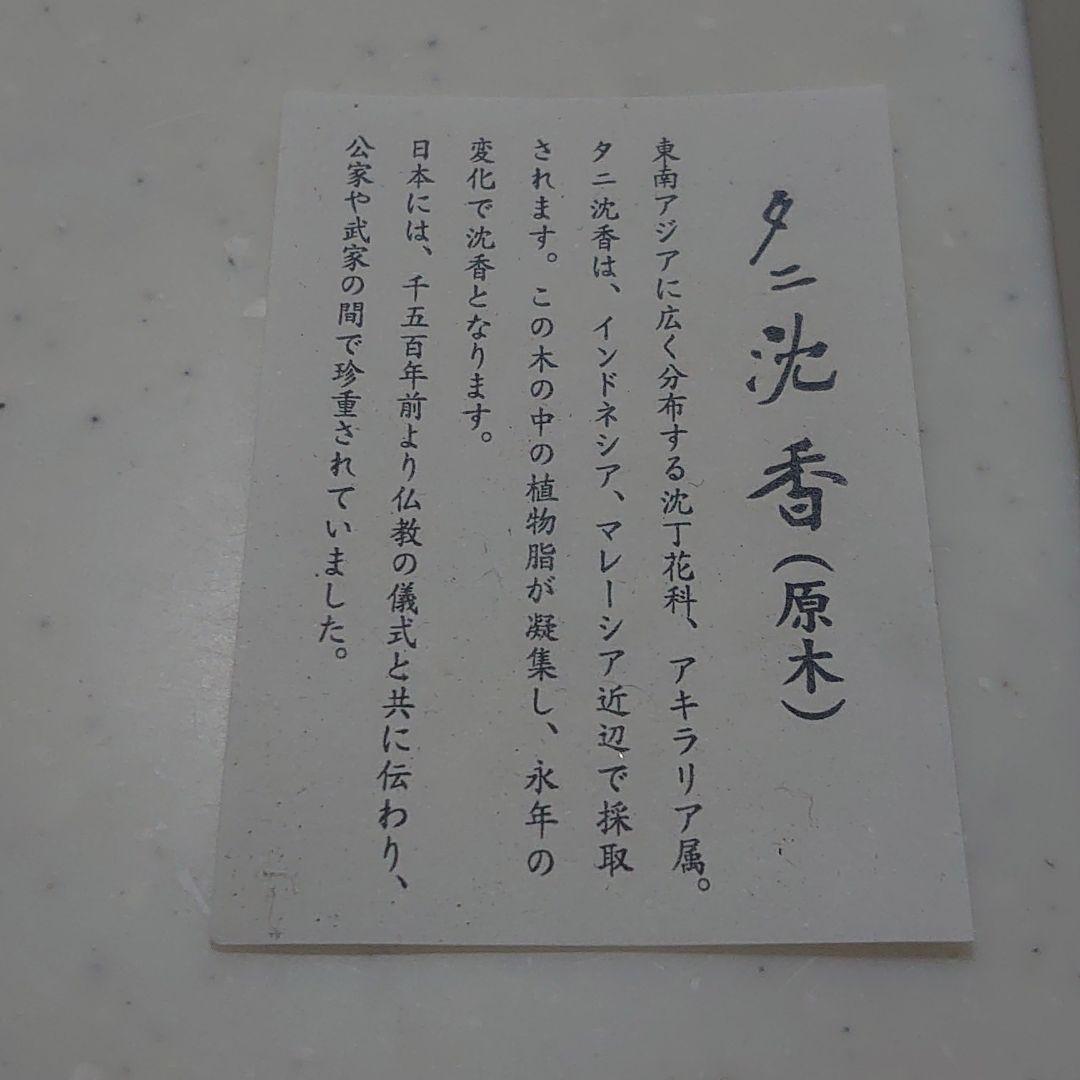 タニ沈香(原木)
東南アジアに広く分布する沈丁花科、アキラリア属。
タニ沈香は、インドネシア、マレーシア近辺で採取
されます。この木の中の植物脂が凝集し、永年の
変化で沈香となります。
日本には、千五百年前より仏教の儀式と共に伝わり、
公家や武家の間で珍重されていました。